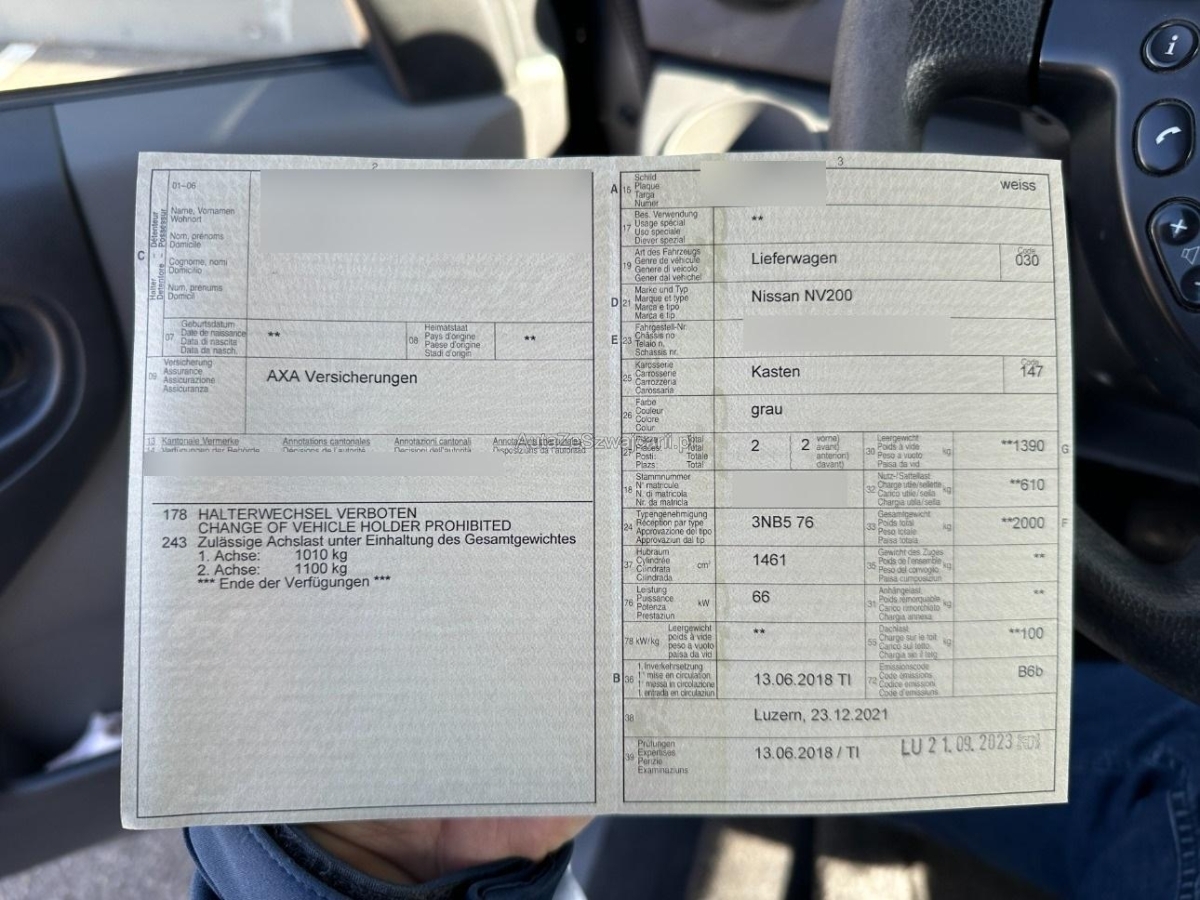 2
01–06
Name, Vornamen
Wohnort
Nom, prénoms
Domicile
Cognome, nomi
Domicilio
Num, prenums
Domicil
C
Halter Détenteur
Detentore Possessur
07
Geburtsdatum
Date de naissance
Data di nascita
Data da nasch.
**
08
Heimatstaat
Pays d'origine
Paese d'origine
Stadi d'origin
**
09
Versicherung
Assurance
Assicurazione
Assicuranza
AXA Versicherungen
13 Kantonale Vermerke Annotations cantonales Annotazioni cantonali
Verfügungen der Behörde Décisions de l'autorité Decisioni dell'autorità Disposiziuns da l'autoritad
178 HALTERWECHSEL VERBOTEN
CHANGE OF VEHICLE HOLDER PROHIBITED
243 Zulässige Achslast unter Einhaltung des Gesamtgewichtes
1. Achse: 1010 kg
2. Achse: 1100 kg
*** Ende der Verfügungen ***
3
A 15
Schild
Plaque
Targa
Numer
weiss
17
Bes. Verwendung
Usage spécial
Uso speciale
Diever spezial
**
19
Art des Fahrzeugs
Genre de véhicule
Genere di veicolo
Gener dal vehichel
Lieferwagen
Code
030
D 21
Marke und Typ
Marque et type
Marca e tipo
Marca e tip
Nissan NV200
E 23
Fahrgestell-Nr.
Châssis no
Telaio n.
Schassis nr.
25
Karosserie
Carrosserie
Carrozzeria
Carossaria
Kasten
Code
147
26
Farbe
Couleur
Colore
Colur
grau
AutoZeSzwajcarii.pl
27
Plätze: Total
Places: Total
Posti: Totale
Plazs: Total
2
2
vorne)
avant)
anteriori)
davant)
30
Leergewicht
Poids à vide
Peso a vuoto
Paisa da vid
kg
**1390
G
18
Stammnummer
N° matricule
N. di matricola
Nr. da matricla
32
Nutz-/Sattellast
Charge utile/sellette
Carico utile/sella
Chargia utila/sella
kg
**610
24
Typengenehmigung
Réception par type
Approvazione del tipo
Approvaziun dal tip
3NB5 76
33
Gesamtgewicht
Poids total
Peso totale
Paisa totala
kg
**2000
F
37
Hubraum
Cylindrée
Cilindrata
Cilindrada
cm³
1461
35
Gewicht des Zuges
Poids de l'ensemble
Peso del convoglio
Paisa cumposiziun
kg
**
76
Leistung
Puissance
Potenza
Prestaziun
kW
66
31
Anhängelast
Poids remorquable
Carico rimorchiato
Chargia annexa
kg
**
78 kW/kg
Leergewicht
poids à vide
peso a vuoto
paisa da vid
**
55
Dachlast
Charge sur le toit
Carico sul tetto
Chargia sin il tetg
kg
**100
B 36
1. Inverkehrsetzung
1re mise en circulation
1a messa in circolazione
1. entrada en circulaziun
13.06.2018 TI
72
Emissionscode
Code émissions
Codice emissioni
Code d'emissiuns
B6b
38
Luzern, 23.12.2021
39
Prüfungen
Expertises
Perizie
Examinaziuns
13.06.2018 / TI
LU 21.09.2023